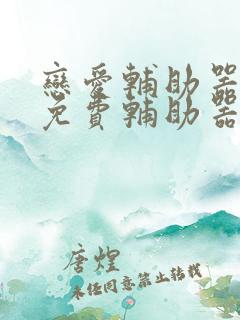 戀愛輔助器
免費輔助器
唐煌
未經同意禁止轉載